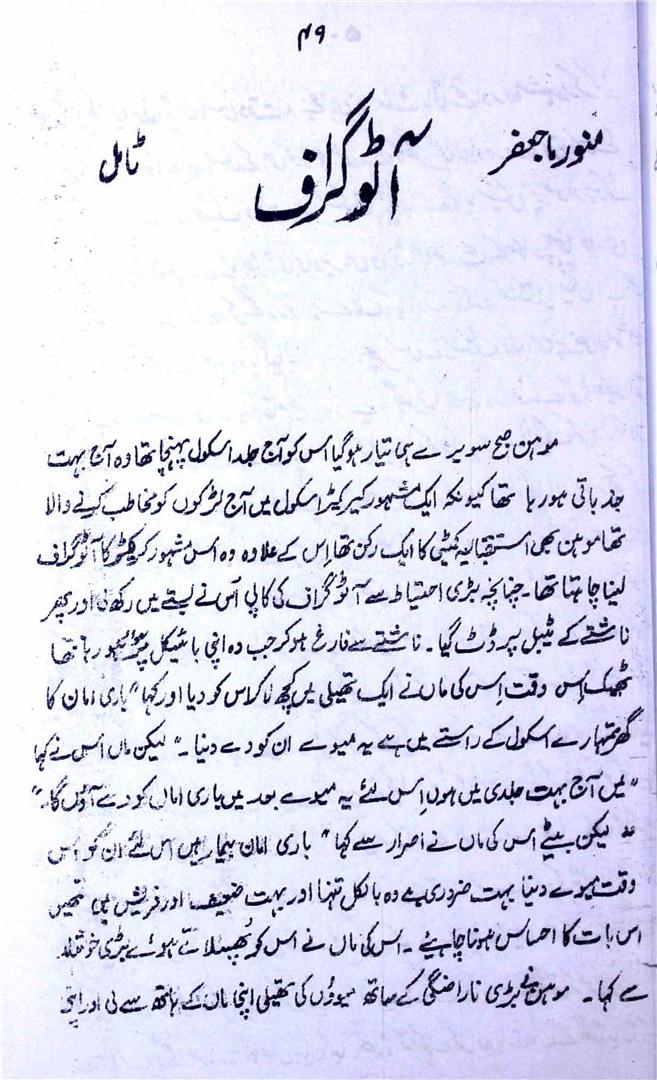 ۴۹
منورما جعفر
آٹوگراف
ٹامل
موہن صبح سویرے ہی تیار ہوگیا اس کو آج جلد اسکول پہنچنا تھا وہ آج بہت
جذباتی ہو رہا تھا کیونکہ ایک مشہور کریکیٹر اسکول میں آج لڑکوں کو مخاطب کرنے والا
تھا موہن بھی استقبالیہ کمیٹی کا ایک رکن تھا اِس کے علاوہ وہ اس مشہور کریکٹر کا آٹوگراف
لینا چاہتا تھا۔ چنانچہ بڑی احتیاط سے آٹوگراف کی کاپی اُس نے بستے میں رکھ لی اور پھر
ناشتے کے ٹیبل پر ڈٹ گیا۔ ناشتے سے فارغ ہوکر جب وہ اپنی بائیسکل پر سوار ہو رہا تھا
ٹھیک اِس وقت اِس کی ماں نے ایک تھیلی میں کچھ لاکر اس کو دیا اور کہا "باری امان کا
گھر تمہارے اسکول کے راستے میں ہے یہ میوے ان کو دے دینا۔" لیکن ماں اس نے کہا
"میں آج بہت جلدی میں ہوں اِس لئے یہ میوے بعد میں باری اماں کو دے آؤں گا۔"
"لیکن بیٹے اس کی ماں نے اصرار سے کہا" باری امان بیمار ہیں اس لئے ان کو اس
وقت میوے دینا بہت ضروری ہے وہ بالکل تنہا اور بہت ضعیف اور فریش ہیں تمھیں
اس بات کا احساس ہونا چاہئیے۔ اس کی ماں نے اس کو پھسلاتے ہوئے بڑی
سے کہا۔ موہن نے بڑی ناراضگی کے ساتھ میووں کی تھیلی اپنی ماں کے ہاتھ سے لی اور اپنی